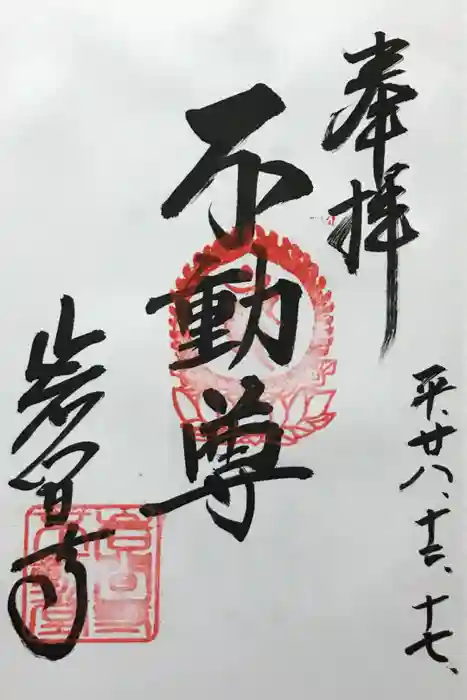 奉拝
平、廿八、十二、十七、
不動尊
岩間寺